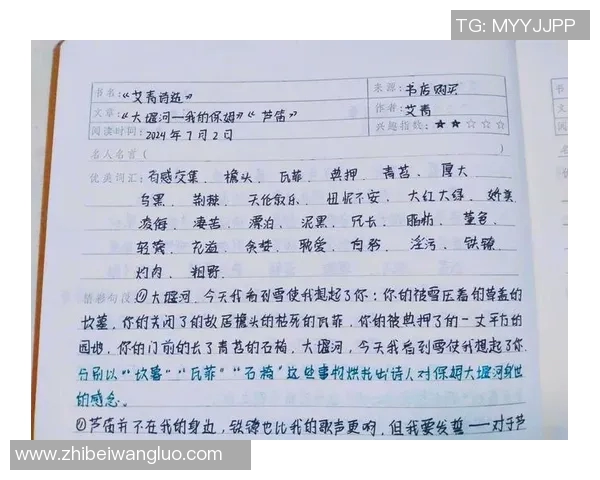 TG: MYYJJPP
书名:《艾青诗选》 来源: 书店购买
文章:《大堰河—我的保姆》《芦笛》 作者: 艾青
阅读时间: 2024年7月2日 兴趣指数: ★★☆☆☆
名人名言(
优美词汇: 百感交集、檐头、瓦菲、典押、青苔、厚大
乌黑、荆棘、天伦叙乐、忸怩不安、大红大绿、娇美
凌侮、凄苦、漂泊、泥黑、冗长、脂肪、堇色、
轻蔑、 、 、 、 、淫污、铁镣、
灼肉、粗野、
精彩句段: ①大堰河,今天我看到雪使我想起了你:你的被雪压着的草盖的
坟墓,你的关闭了的故居檐头的枯死的瓦菲,你的被典押了的一丈平方的
园地,你的门前的长了青苔的石椅,大堰河,今天我看到雪使我想起了你.
分别以“坟墓”“瓦菲”“石椅”这些事物烘托出诗人对保姆大堰河身世
的感念。
②芦笛并不在我的身边,铁镣也比我的歌声更响,但我要发誓——对于芦
www.zhibeiwangluo.com